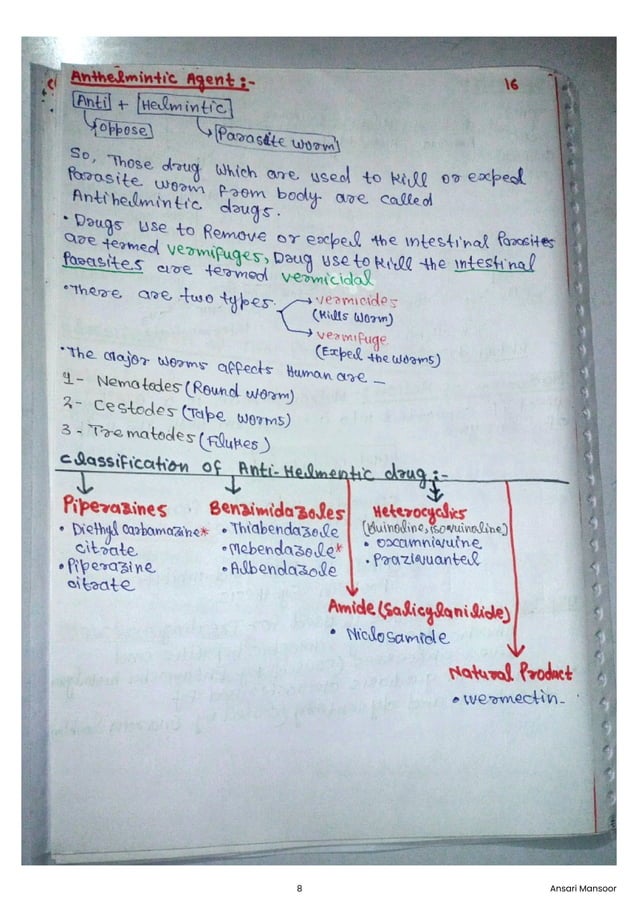 Anthelmintic Agent :-
16
Anti + Helmintic
oppose
Parasite worm
So, Those drug which are used to kill or expel
Parasite worm from body are called
Antihelmintic drugs.
• Drugs use to Remove or expel the intestinal Parasites
are termed vermifuges, Drug use to kill the intestinal
Parasites are termed vermicidal
• There are two types.
vermicides
(Kills worm)
vermifuge
(Expel the worms)
• The major worms affects Human are -
1 - Nematodes (Round worm)
2 - Cestodes (Tape worms)
3 - Trematodes (Flukes)
Classification of Anti-Helmentic drug :-
Piperazines
• Diethyl carbamazine*
citrate
• Piperazine
citrate
Benzimidazoles
• Thiabendazole
• Mebendazole*
• Albendazole
Heterocyclics
(Quinoline, isoquinoline)
• oxamniquine
• Praziquantel
Amide (Salicylanilide)
• Niclosamide
Natural Product
• Ivermectin -
8
Ansari Mansoor